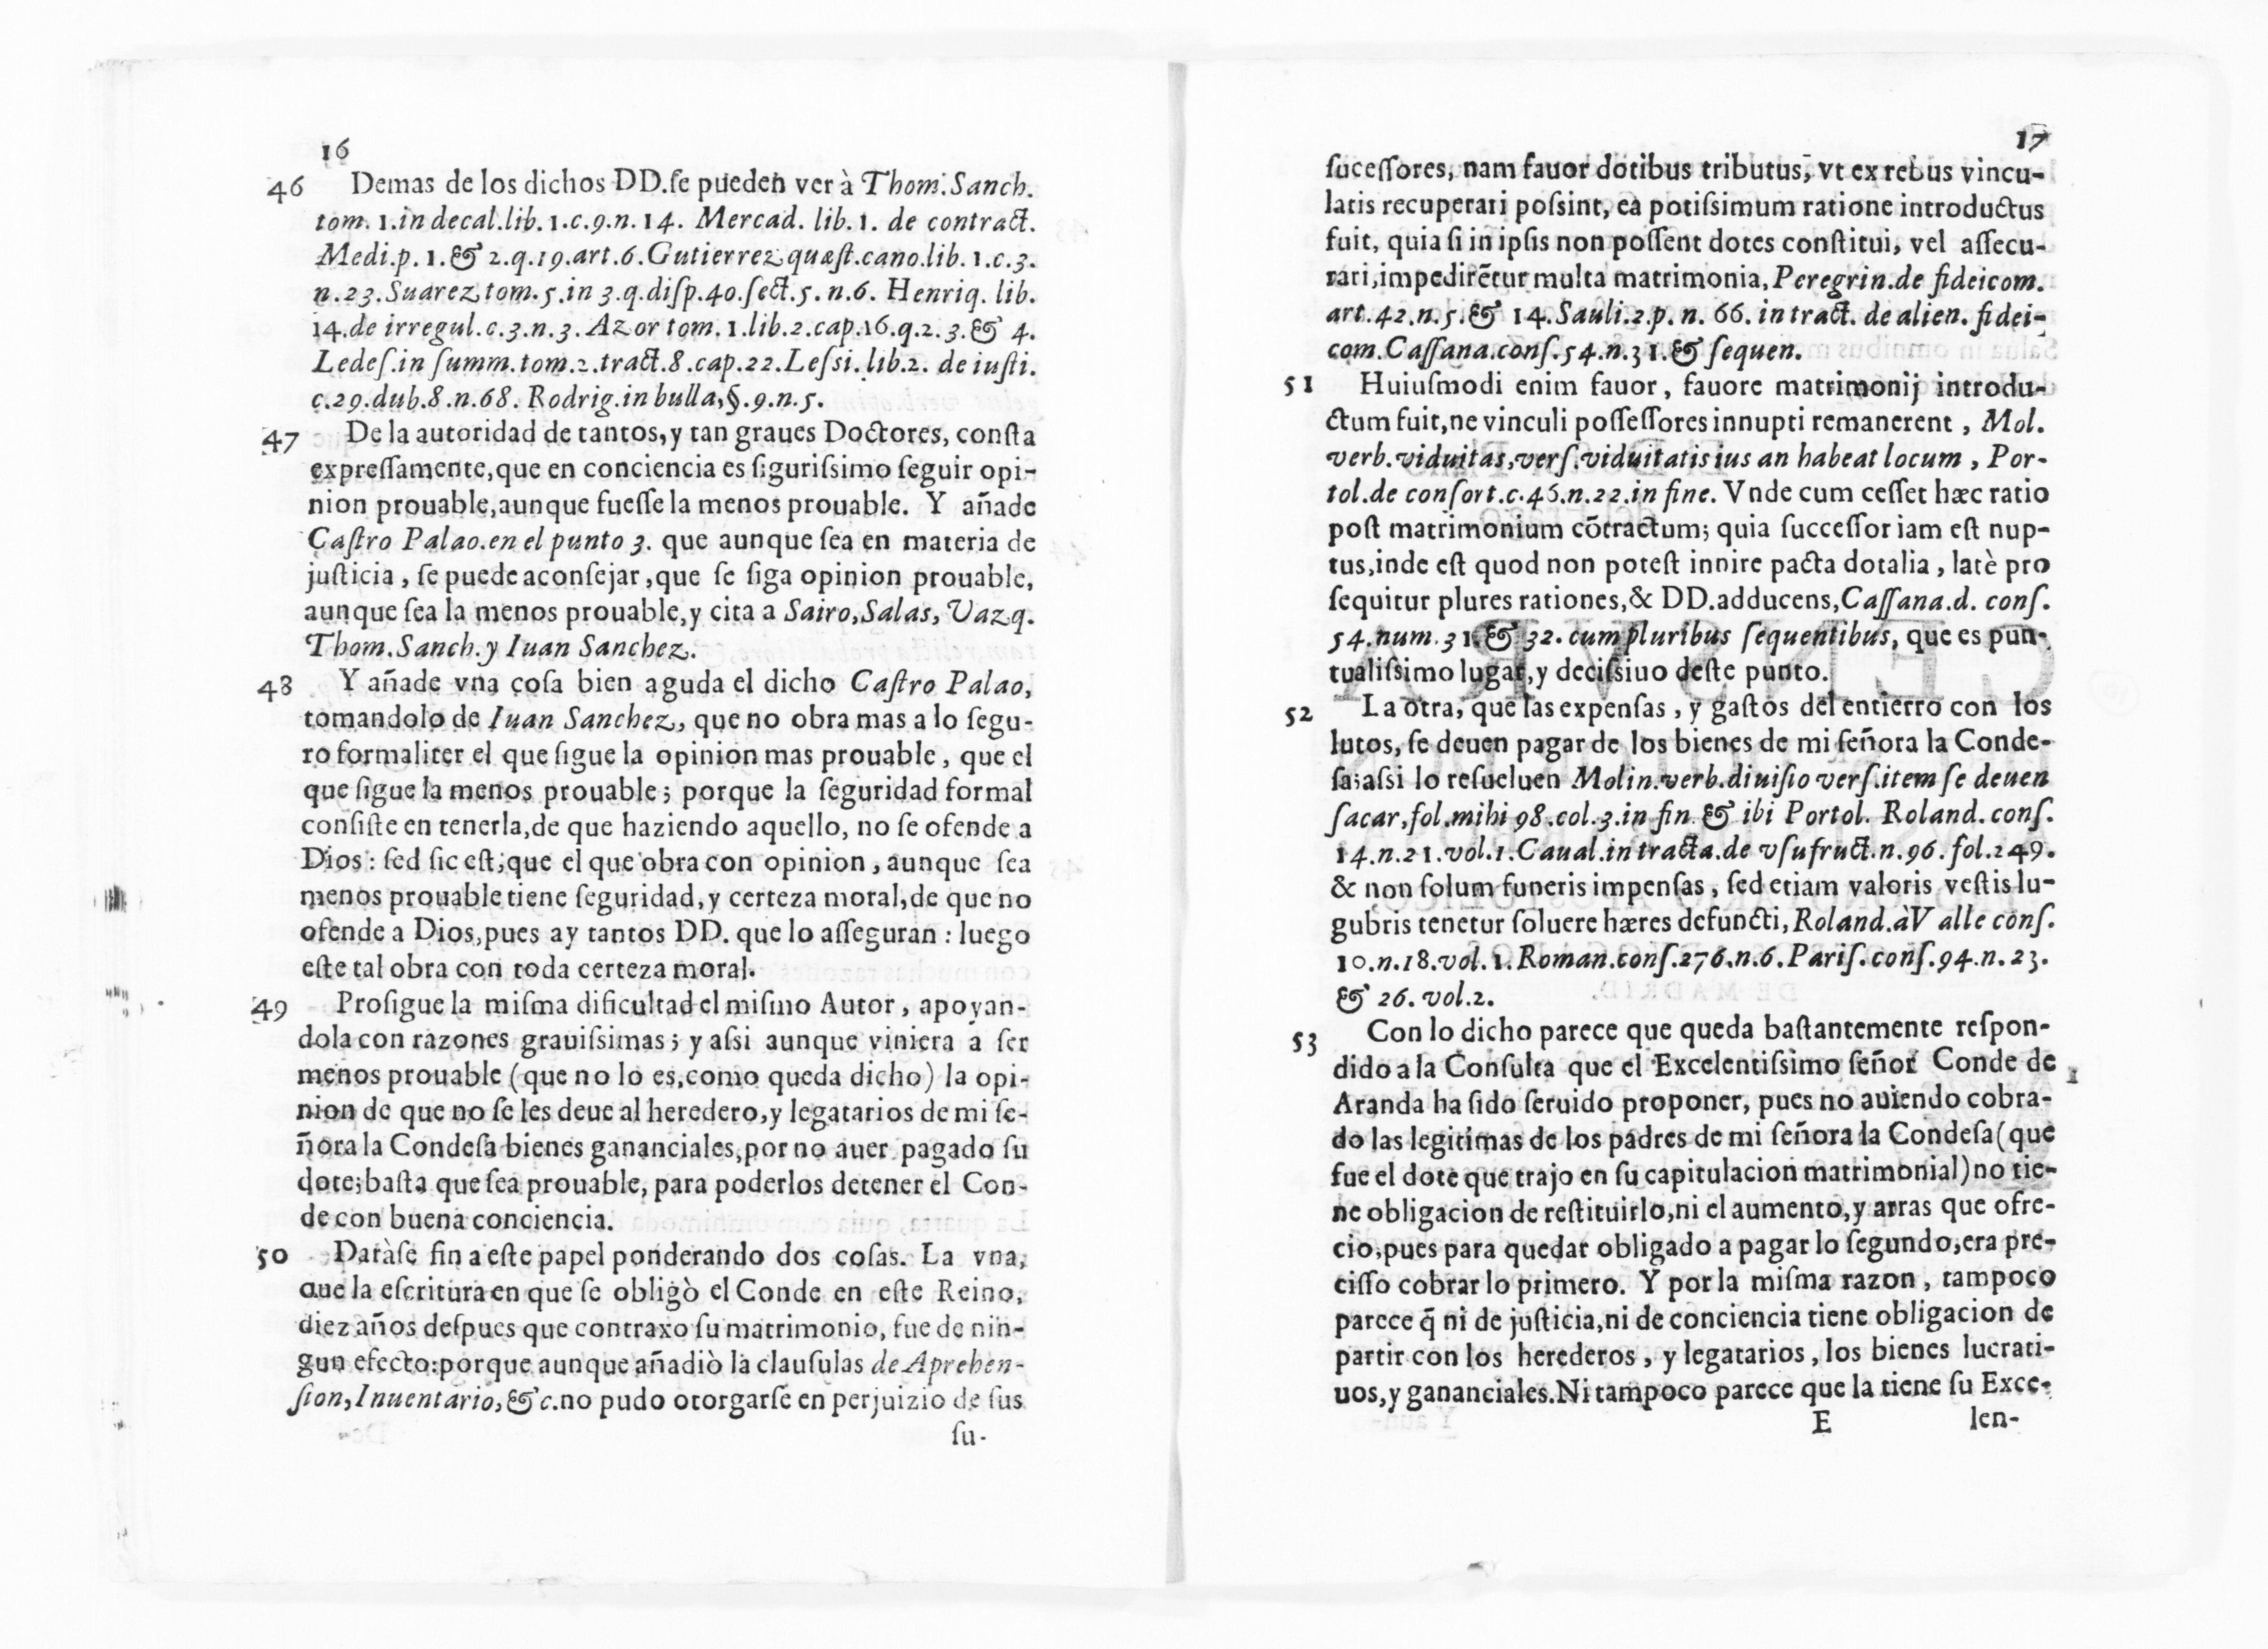 16
46 Demas de los dichos DD.ſe pueden ver à Thom.Sanch.
tom. 1.in decal.lib.1.c.9.n.14. Mercad. lib.1. de contract.
Medi.p. 1.& 2.q.19.art.6.Gutierrez quæſt.cano.lib.1.c.3.
n.23.Suarez tom.5.in 3.q.diſp.40.ſect.5.n.6. Henriq. lib.
14.de irregul.c.3.n.3.Azor tom.1.lib.2.cap.16.q.2.3.& 4.
Ledeſ.in ſumm.tom.2.tract.8.cap.22.Leſsi.lib.2. de iuſti.
c.29.dub.8.n.68.Rodrig.in bulla,§.9.n.5.
47 De la autoridad de tantos,y tan graues Doctores, conſta
expreſſamente,que en conciencia es ſiguriſsimo ſeguir opi-
nion prouable,aunque fueſſe la menos prouable. Y añade
Caſtro Palao.en el punto 3. que aunque ſea en materia de
juſticia, ſe puede aconſejar,que ſe ſiga opinion prouable,
aunque ſea la menos prouable,y cita a Sairo,Salas, Vazq.
Thom.Sanch.y Iuan Sanchez.
48 Y añade vna coſa bien aguda el dicho Caſtro Palao,
tomandolo de Iuan Sanchez, que no obra mas a lo ſegu-
ro formaliter el que ſigue la opinion mas prouable, que el
que ſigue la menos prouable; porque la ſeguridad formal
conſiſte en tenerla,de que haziendo aquello, no ſe ofende a
Dios: ſed ſic eſt,que el que obra con opinion, aunque ſea
menos prouable tiene ſeguridad,y certeza moral,de que no
ofende a Dios,pues ay tantos DD. que lo aſſeguran: luego
eſte tal obra con toda certeza moral.
49 Proſigue la miſma dificultad el miſmo Autor, apoyan-
dola con razones grauiſsimas; y aſsi aunque viniera a ſer
menos prouable (que no lo es,como queda dicho) la opi-
nion de que no ſe les deue al heredero,y legatarios de mi ſe-
ñora la Condeſa bienes gananciales,por no auer pagado ſu
dote;baſta que ſea prouable, para poderlos detener el Con-
de con buena conciencia.
50 Daràſe fin a eſte papel ponderando dos coſas. La vna,
que la eſcritura en que ſe obligò el Conde en eſte Reino,
diez años deſpues que contraxo ſu matrimonio, fue de nin-
gun efecto:porque aunque añadiò la clauſulas de Aprehen-
ſion,Inuentario,&c.no pudo otorgarſe en perjuizio de ſus
ſu-
17
ſuceſſores, nam fauor dotibus tributus, vt ex rebus vincu-
latis recuperari poſsint, ea potiſsimum ratione introductus
fuit, quia ſi in ipſis non poſſent dotes conſtitui, vel aſſecu-
rari,impedirẽtur multa matrimonia, Peregrin.de fideicom.
art.42.n.5.& 14.Sauli.2.p. n. 66. in tract. de alien. fidei-
com.Caſſana.conſ.54.n.31.& ſequen.
51 Huiuſmodi enim fauor, fauore matrimonij introdu-
ctum fuit,ne vinculi poſſeſſores innupti remanerent, Mol.
verb.viduitas,verſ.viduitatis ius an habeat locum, Por-
tol.de conſort.c.46.n.22.in fine. Vnde cum ceſſet hæc ratio
poſt matrimonium cõtractum; quia ſucceſſor iam eſt nup-
tus,inde eſt quod non poteſt innire pacta dotalia, latè pro
ſequitur plures rationes,& DD.adducens,Caſſana.d. conſ.
54.num.31.& 32.cum pluribus ſequentibus, que es pun-
tualiſsimo lugar,y deciſsiuo deſte punto.
52 La otra, que las expenſas, y gaſtos del entierro con los
lutos, ſe deuen pagar de los bienes de mi ſeñora la Conde-
ſa;aſsi lo reſueluen Molin.verb.diuiſio verſ.item ſe deuen
ſacar,fol.mihi 98.col.3.in fin.& ibi Portol. Roland. conſ.
14.n.21.vol.1.Caual.in tracta.de vſufruct.n.96.fol.249.
& non ſolum funeris impenſas, ſed etiam valoris veſtis lu-
gubris tenetur ſoluere hæres defuncti, Roland.à Valle conſ.
10.n.18.vol.1.Roman.conſ.276.n.6.Pariſ.conſ.94.n.23.
& 26.vol.2.
53 Con lo dicho parece que queda baſtantemente reſpon-
dido a la Conſulta que el Excelentiſsimo ſeñor Conde de
Aranda ha ſido ſeruido proponer, pues no auiendo cobra-
do las legitimas de los padres de mi ſeñora la Condeſa(que
fue el dote que trajo en ſu capitulacion matrimonial)no tie-
ne obligacion de reſtituirlo,ni el aumento,y arras que ofre-
cio,pues para quedar obligado a pagar lo ſegundo,era pre-
ciſſo cobrar lo primero. Y por la miſma razon, tampoco
parece q̃ ni de juſticia,ni de conciencia tiene obligacion de
partir con los herederos, y legatarios, los bienes lucrati-
uos,y gananciales.Ni tampoco parece que la tiene ſu Exce-
E len-